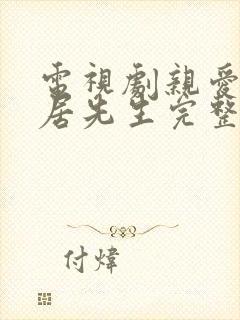 電視劇親愛
居先生完整
付煒